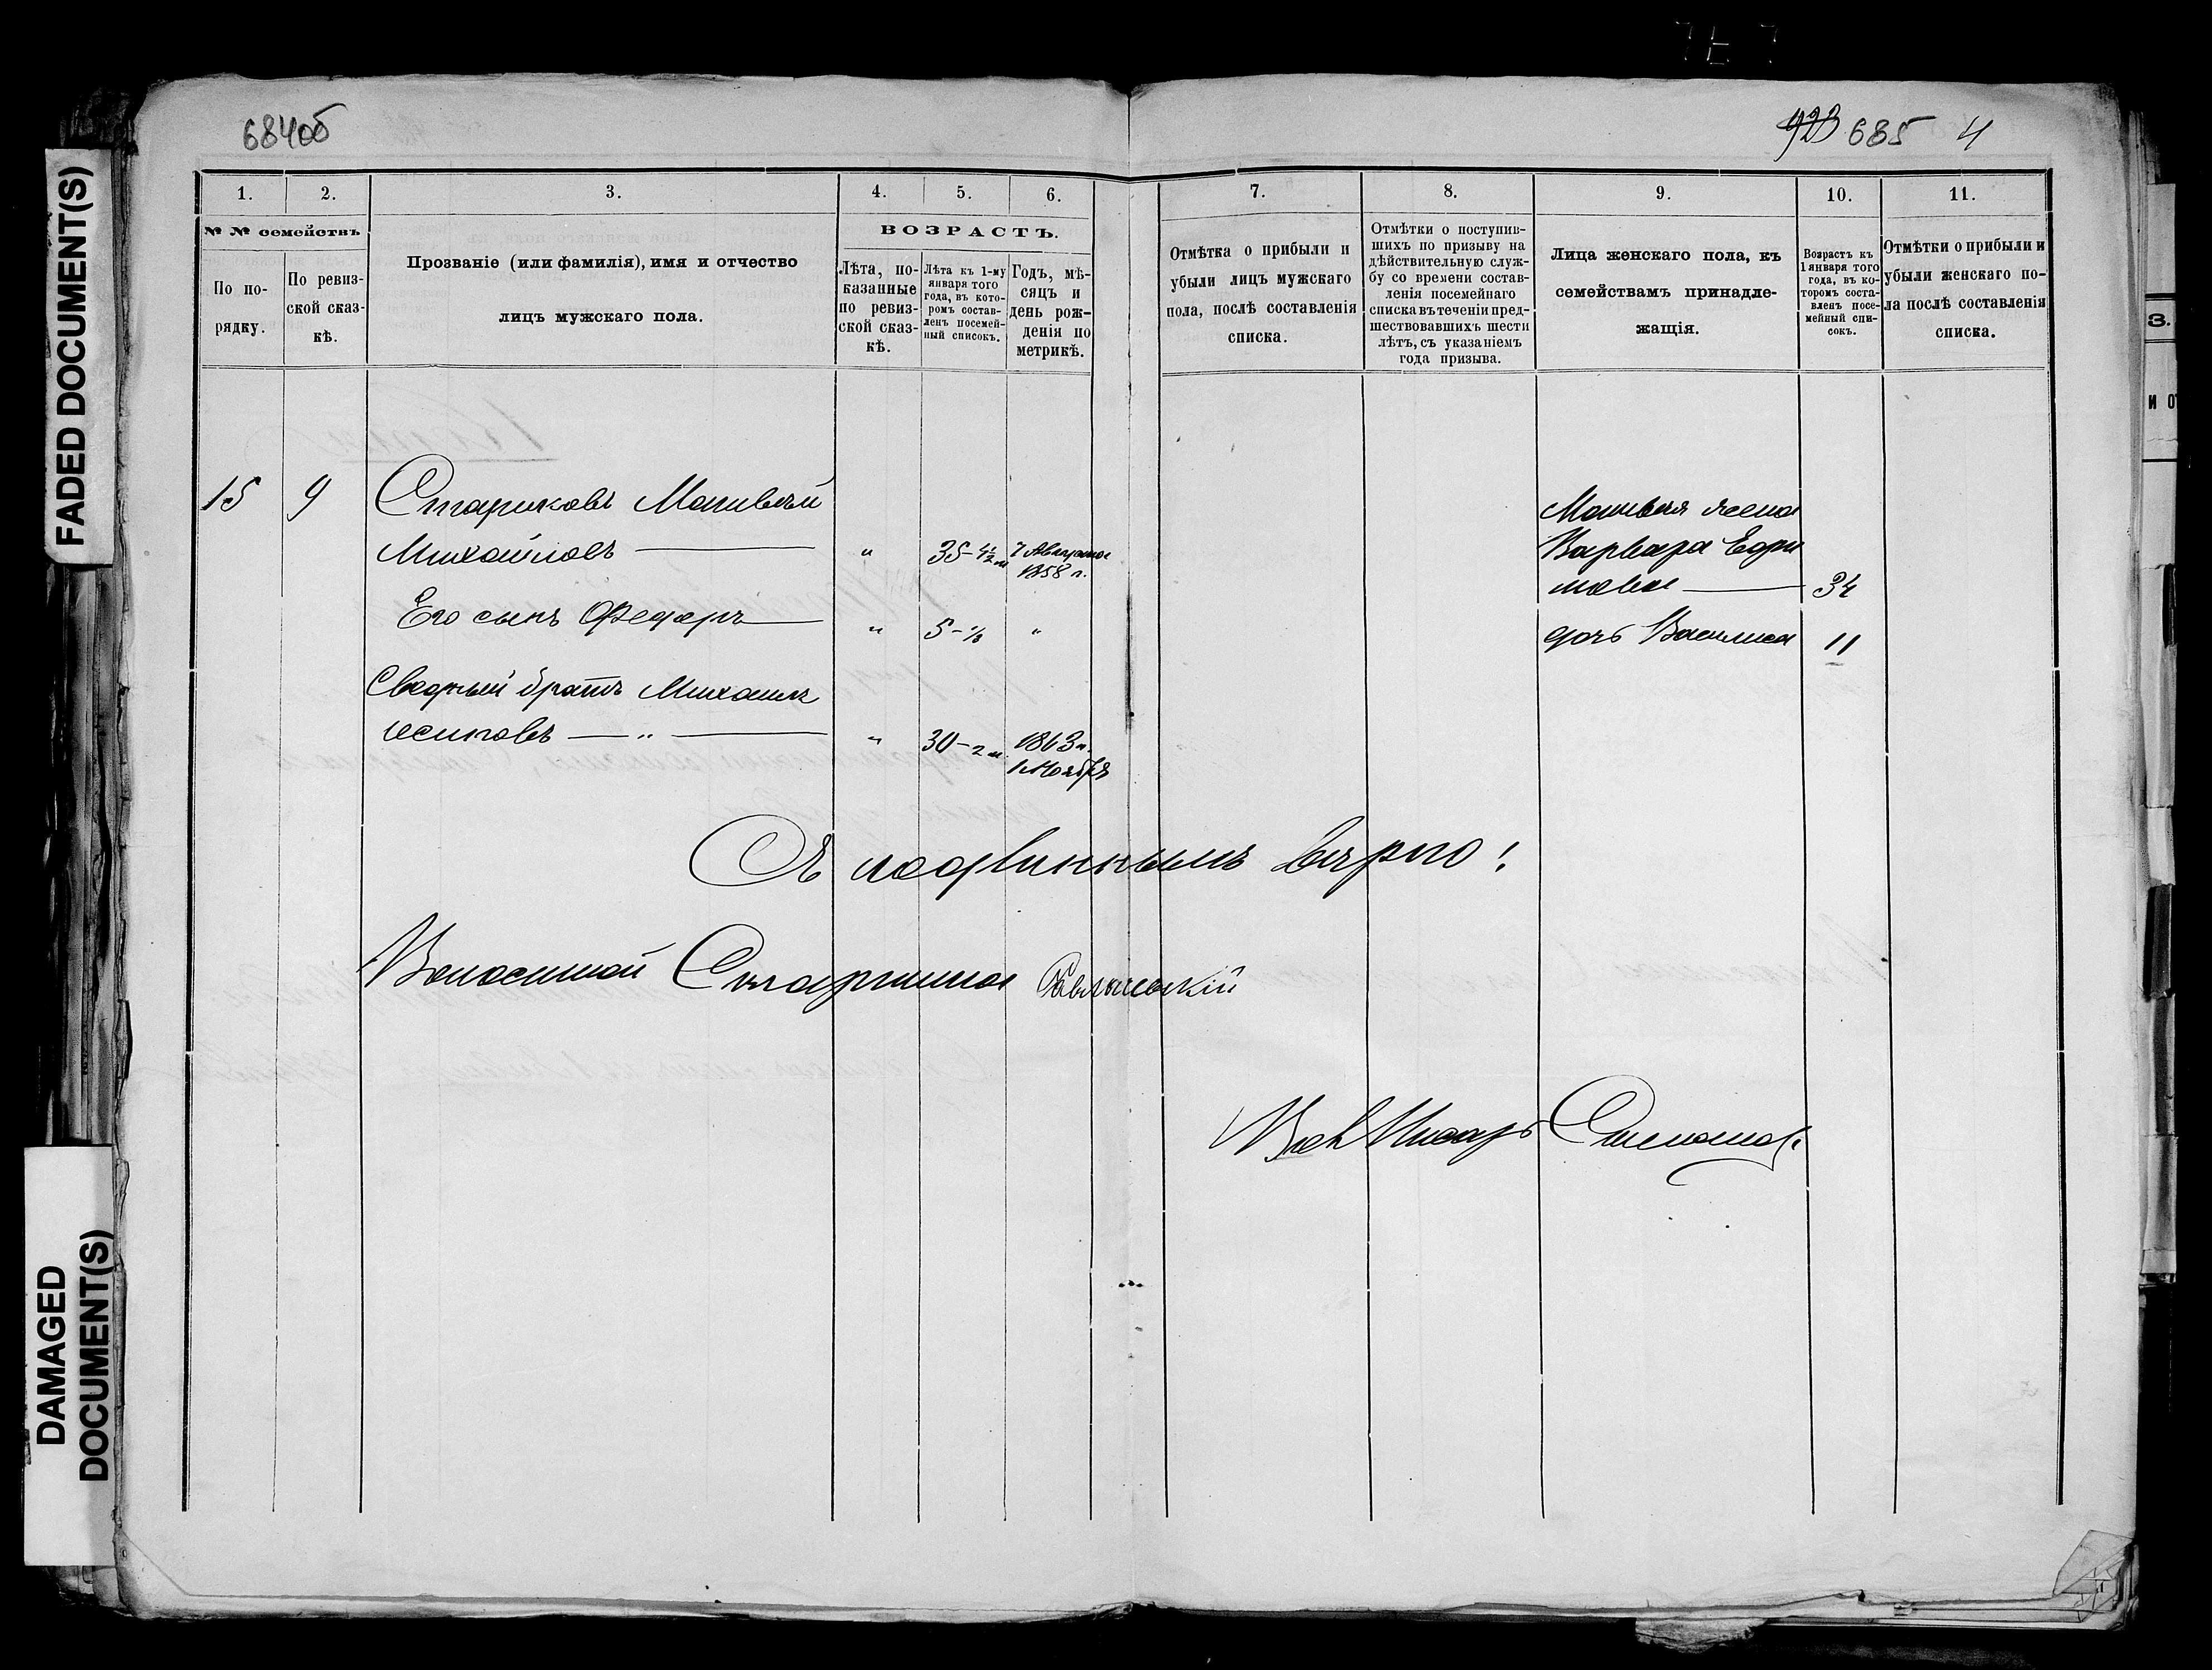 684об
923 685 4
FADED DOCUMENT(S)
DAMAGED
DOCUMENT(S)
1. 2. 3. 4. 5. 6.
№ № семействъ
По по-
рядку.
По ревиз-
ской сказ-
кѣ.
Прозваніе (или фамилія), имя и отчество
лицъ мужскаго пола.
ВОЗРАСТЪ.
Лѣта, по-
казанные
по ревиз-
ской сказ-
кѣ.
Лѣта къ 1-му
января того
года, въ кото-
ромъ состав-
ленъ посемей-
ный списокъ.
Годъ, мѣ-
сяцъ и
день рож-
денія по
метрикѣ.
7. 8. 9. 10. 11.
Отмѣтка о прибыли и
убыли лицъ мужскаго
пола, послѣ составленія
списка.
Отмѣтки о поступив-
шихъ по призыву на
дѣйствительную служ-
бу со времени состав-
ленія посемейнаго
списка въ теченіи пред-
шествовавшихъ шести
лѣтъ, съ указаніемъ
года призыва.
Лица женскаго пола, къ
семействамъ принадле-
жащія.
Возрастъ къ
1 января того
года, въ ко-
торомъ соста-
вленъ посе-
мейный спи-
сокъ.
Отмѣтки о прибыли и
убыли женскаго по-
ла послѣ составленія
списка.
3.
и о
15 9 Стариковъ Матвѣй
Михайловъ — " 35-4½ м 7 Августа
1858 г.
Его сынъ Федоръ — " 5-½ "
Сводный братъ Михаилъ
Осиповъ — " — " 30-2 м. 1863 г.
1 Ноября
Матвѣя жена
Варвара Ефи
мова — 34
дочь Василиса 11
Съ подлиннымъ вѣрно!
Волостной Старшина
Вол Писарь Степанов